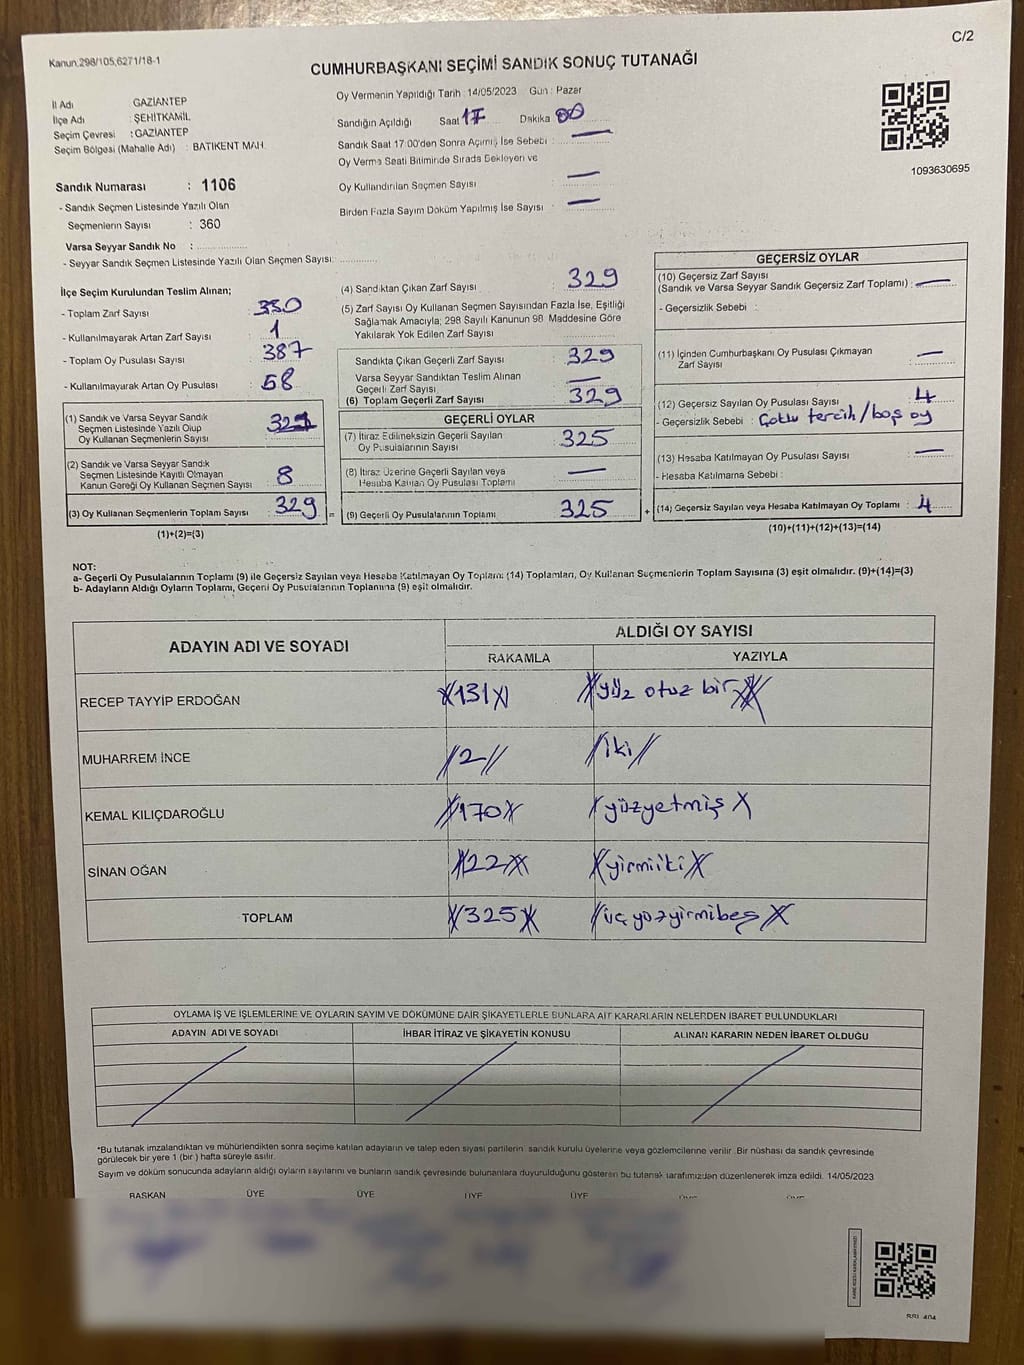 C/2
Kanun.298/105,6271/18-1
CUMHURBAŞKANI SEÇİMİ SANDIK SONUÇ TUTANAĞI
İl Adı GAZİANTEP
İlçe Adı : ŞEHİTKAMİL
Seçim Çevresi : GAZİANTEP
Seçim Bölgesi (Mahalle Adı) : BATIKENT MAH.
Sandık Numarası : 1106
- Sandık Seçmen Listesinde Yazılı Olan
Seçmenlerin Sayısı : 360
Varsa Seyyar Sandık No :
- Seyyar Sandık Seçmen Listesinde Yazılı Olan Seçmen Sayısı:
Oy Vermenin Yapıldığı Tarih : 14/05/2023 Gün : Pazar
Sandığın Açıldığı Saat 17 Dakika 00
Sandık Saat 17:00'den Sonra Açılmış İse Sebebi : —
Oy Verme Saati Bitiminde Sırada Bekleyen ve
Oy Kullandırılan Seçmen Sayısı : —
Birden Fazla Sayım Döküm Yapılmış İse Sayısı : —
1093630695
İlçe Seçim Kurulundan Teslim Alınan;
- Toplam Zarf Sayısı : 330
- Kullanılmayarak Artan Zarf Sayısı : 1
- Toplam Oy Pusulası Sayısı : 387
- Kullanılmayarak Artan Oy Pusulası : 58
(1) Sandık ve Varsa Seyyar Sandık
Seçmen Listesinde Yazılı Olup
Oy Kullanan Seçmenlerin Sayısı : 321
(2) Sandık ve Varsa Seyyar Sandık
Seçmen Listesinde Kayıtlı Olmayan
Kanun Gereği Oy Kullanan Seçmen Sayısı : 8
(3) Oy Kullanan Seçmenlerin Toplam Sayısı : 329
(1)+(2)=(3)
(4) Sandıktan Çıkan Zarf Sayısı : 329
(5) Zarf Sayısı Oy Kullanan Seçmen Sayısından Fazla İse, Eşitliği
Sağlamak Amacıyla; 298 Sayılı Kanunun 98. Maddesine Göre
Yakılarak Yok Edilen Zarf Sayısı :
Sandıkta Çıkan Geçerli Zarf Sayısı : 329
Varsa Seyyar Sandıktan Teslim Alınan
Geçerli Zarf Sayısı : —
(6) Toplam Geçerli Zarf Sayısı : 329
GEÇERLİ OYLAR
(7) İtiraz Edilmeksizin Geçerli Sayılan
Oy Pusulalarının Sayısı : 325
(8) İtiraz Üzerine Geçerli Sayılan veya
Hesaba Katılan Oy Pusulası Toplamı : —
= (9) Geçerli Oy Pusulalarının Toplamı : 325
GEÇERSİZ OYLAR
(10) Geçersiz Zarf Sayısı
(Sandık ve Varsa Seyyar Sandık Geçersiz Zarf Toplamı) : —
- Geçersizlik Sebebi :
(11) İçinden Cumhurbaşkanı Oy Pusulası Çıkmayan
Zarf Sayısı : —
(12) Geçersiz Sayılan Oy Pusulası Sayısı : 4
- Geçersizlik Sebebi : Çoklu tercih/boş oy
(13) Hesaba Katılmayan Oy Pusulası Sayısı : —
- Hesaba Katılmama Sebebi :
+ (14) Geçersiz Sayılan veya Hesaba Katılmayan Oy Toplamı : 4
(10)+(11)+(12)+(13)=(14)
NOT:
a- Geçerli Oy Pusulalarının Toplamı (9) ile Geçersiz Sayılan veya Hesaba Katılmayan Oy Toplamı (14) Toplamları, Oy Kullanan Seçmenlerin Toplam Sayısına (3) eşit olmalıdır. (9)+(14)=(3)
b- Adayların Aldığı Oyların Toplamı, Geçerli Oy Pusulalarının Toplamına (9) eşit olmalıdır.
ADAYIN ADI VE SOYADI
ALDIĞI OY SAYISI
RAKAMLA YAZIYLA
RECEP TAYYİP ERDOĞAN 131 yüz otuz bir
MUHARREM İNCE 2 iki
KEMAL KILIÇDAROĞLU 170 yüzyetmiş
SİNAN OĞAN 22 yirmiiki
TOPLAM 325 üç yüzyirmibeş
OYLAMA İŞ VE İŞLEMLERİNE VE OYLARIN SAYIM VE DÖKÜMÜNE DAİR ŞİKAYETLERLE BUNLARA AİT KARARLARIN NELERDEN İBARET BULUNDUKLARI
ADAYIN ADI VE SOYADI İHBAR İTİRAZ VE ŞİKAYETİN KONUSU ALINAN KARARIN NEDEN İBARET OLDUĞU
*Bu tutanak imzalandıktan ve mühürlendikten sonra seçime katılan adayların ve talep eden siyasi partilerin sandık kurulu üyelerine veya gözlemcilerine verilir. Bir nüshası da sandık çevresinde
görülecek bir yere 1 (bir) hafta süreyle asılır.
Sayım ve döküm sonucunda adayların aldığı oyların sayılarını ve bunların sandık çevresinde bulunanlara duyurulduğunu gösteren bu tutanak tarafımızdan düzenlenerek imza edildi. 14/05/2023
BAŞKAN ÜYE ÜYE ÜYE ÜYE